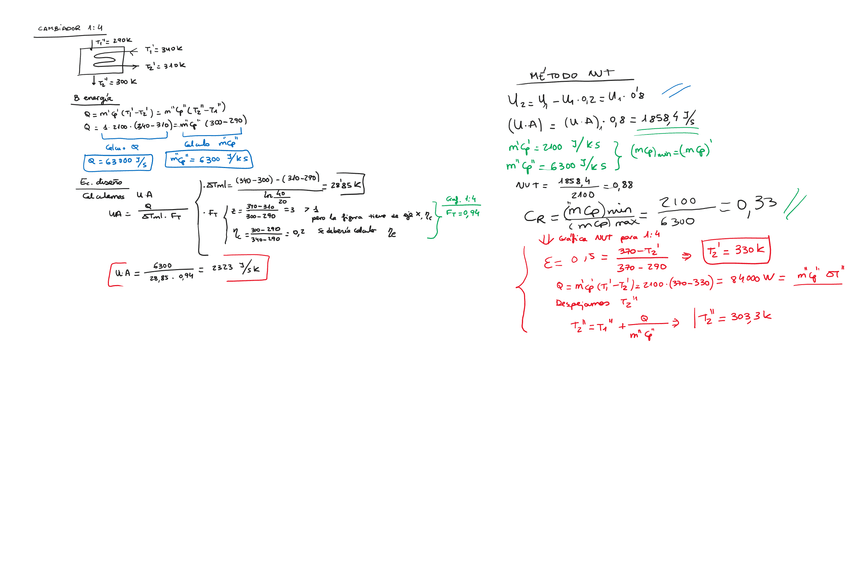 CAMBIADOR 1:4
T₁''= 290K
T₁'= 340K
T₂'= 310K
T₂''= 300K
B energía
Q = m'Cp'(T₁'-T₂') = m''Cp''(T₂''-T₁'')
Q = 1·2100·(340-310) = m''Cp''(300-290)
Calcu. Q
Calculo m''Cp''
Q = 63000 J/s
m''Cp'' = 6300 J/K s
Ec. diseño
Calculemos UA
UA = Q / (ΔTml · FT)
· ΔTml = ((340-300) - (310-290)) / ln 40/20 = 28'85 K
· FT
z = (340-310)/(300-290) = 3 > 1
pero la figura tiene de eje x, ηc
ηc = (300-290)/(340-290) = 0,2 Se debería calcular ηc
Graf. 1:4
FT = 0,94
UA = 6300 / (28,85 · 0,94) = 2323 J/s K
MÉTODO NUT
U₂ = U₁ - U₁·0,2 = U₁·0'8
(U·A) = (U·A)₁·0,8 = 1858,4 J/s
m'Cp' = 2100 J/K s
m''Cp'' = 6300 J/K s
(mCp)min = (mCp)'
NUT = 1858,4 / 2100 = 0,88
CR = (mCp)min / (mCp)max = 2100 / 6300 = 0,33
⇓ Gráfica NUT para 1:4
ε = 0,5 = (370-T₂') / (370-290) ⇒ T₂' = 330 K
Q = m'Cp'(T₁'-T₂') = 2100·(370-330) = 84000 W = m''Cp'' ΔT''
Despejamos T₂''
T₂'' = T₁'' + Q / m''Cp'' ⇒ T₂'' = 303,3 K